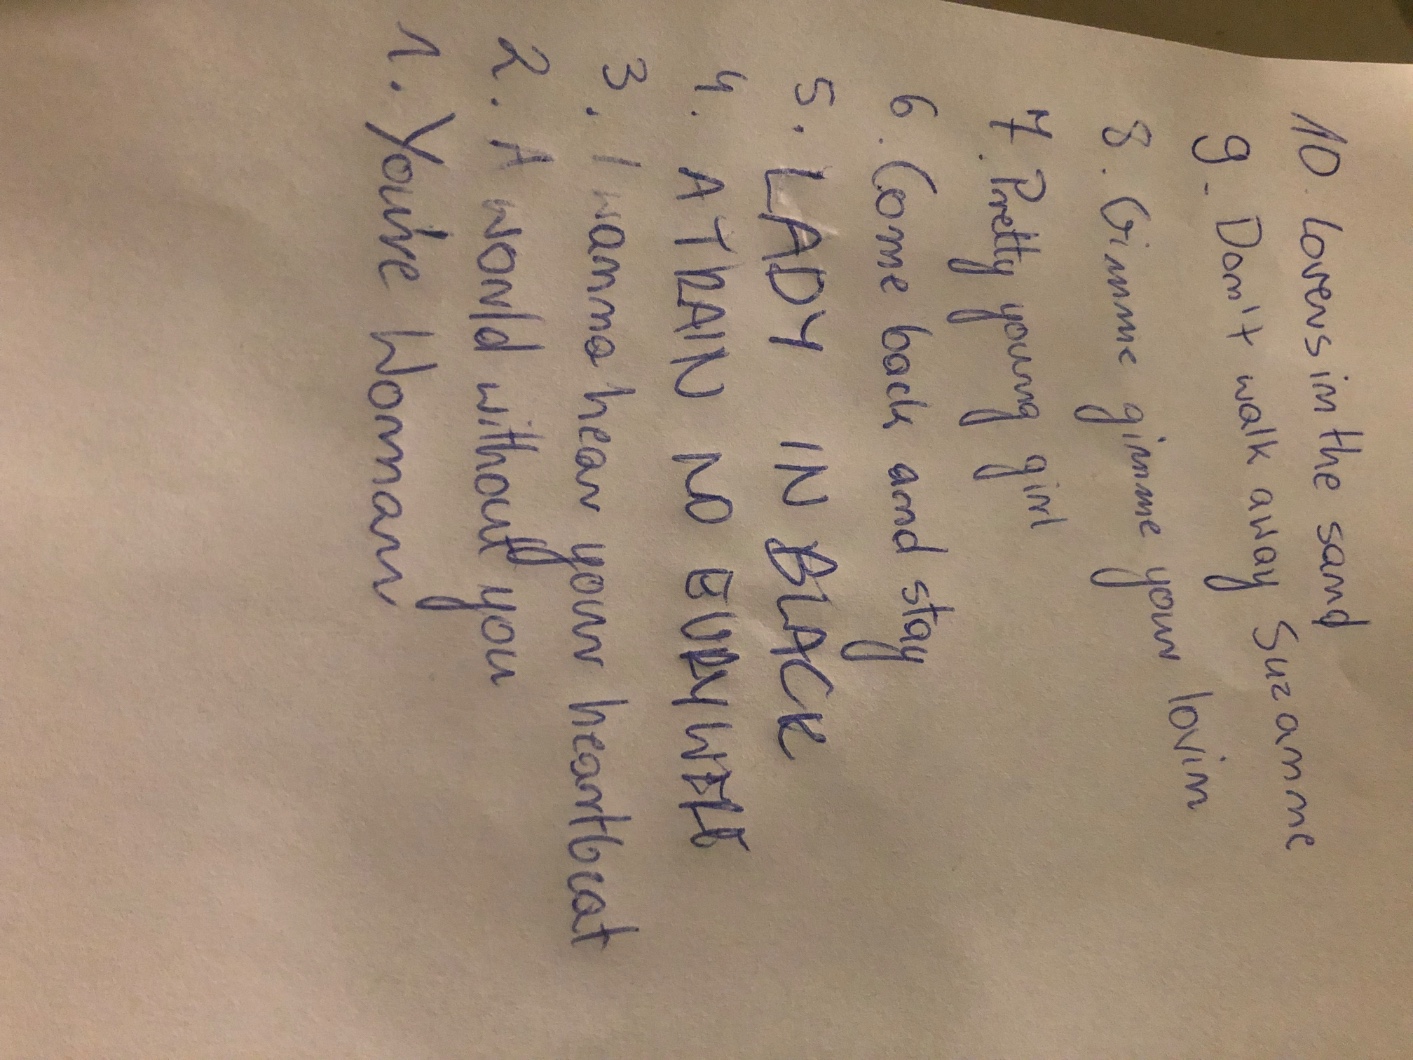 10. Lovers in the sand
9. Don't walk away Suzanne
8. Gimme gimme your lovin
7. Pretty young girl
6. Come back and stay
5. LADY IN BLACK
4. A TRAIN NO EVRYWERE
3. I wanna hear your heartbeat
2. A world without you
1. You're Woman